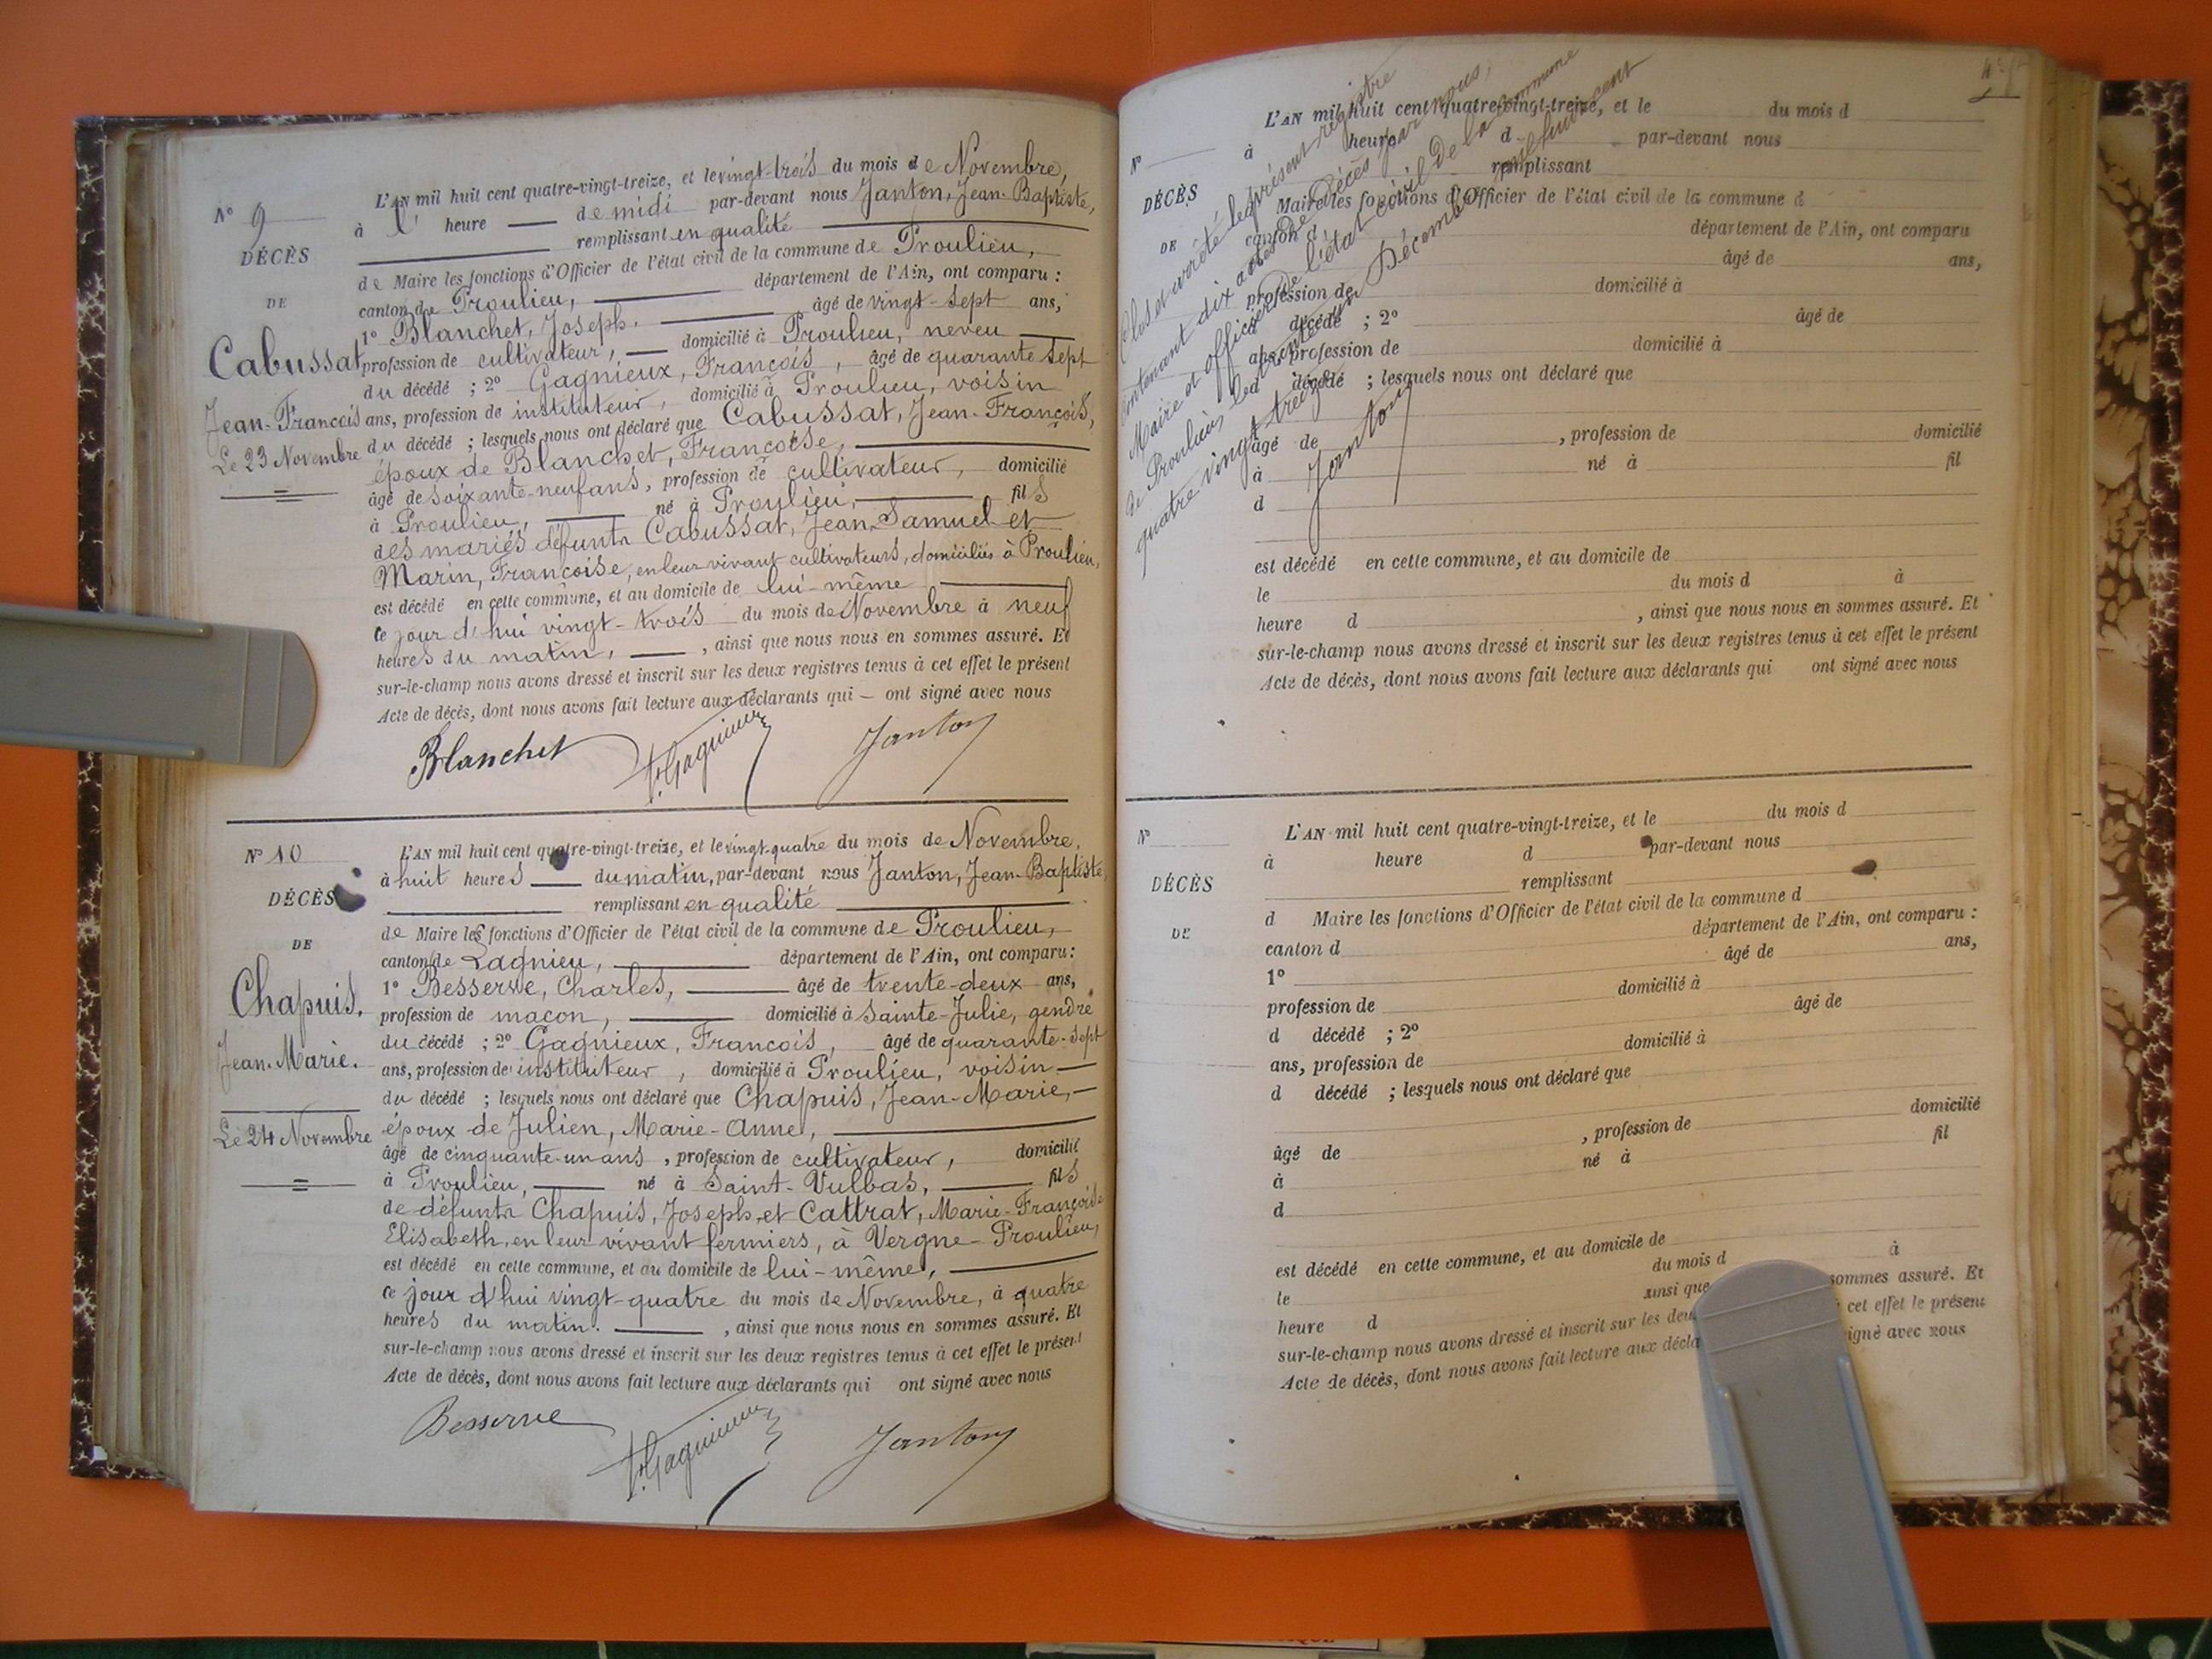 N° 9
DÉCÈS
DE
Cabussat
Jean-Francois
Le 23 Novembre
L'AN mil huit cent quatre-vingt-treize, et le vingt-trois du mois de Novembre,
à l' heure — de midi par-devant nous Janton, Jean-Baptiste,
remplissant en qualité
de Maire les fonctions d'Officier de l'état civil de la commune de Proulieu,
canton de Proulieu, département de l'Ain, ont comparu :
1° Blanchet, Joseph. âgé de vingt-sept ans,
profession de cultivateur, — domicilié à Proulieu, neveu
du décédé ; 2° Gagnieux, François, âgé de quarante sept
ans, profession de instituteur, domicilié à Proulieu, voisin
du décédé ; lesquels nous ont déclaré que Cabussat, Jean-François,
époux de Blanchet, Françoise,
âgé de soixante-neuf ans, profession de cultivateur, domicilié
à Proulieu, né à Proulieu, fils
des mariés défunts Cabussat, Jean-Samuel et
Marin, Françoise, en leur vivant cultivateurs, domiciliés à Proulieu,
est décédé en cette commune, et au domicile de lui-même
ce jour d'hui vingt-trois du mois de Novembre à neuf
heures du matin, — , ainsi que nous nous en sommes assuré. Et
sur-le-champ nous avons dressé et inscrit sur les deux registres tenus à cet effet le présent
Acte de décès, dont nous avons fait lecture aux déclarants qui — ont signé avec nous
Blanchet F. Gagnieux Janton
N° 10
DÉCÈS
DE
Chapuis,
Jean-Marie.
Le 24 Novembre
L'AN mil huit cent quatre-vingt-treize, et le vingt-quatre du mois de Novembre,
à huit heures — du matin, par-devant nous Janton, Jean-Baptiste
remplissant en qualité
de Maire les fonctions d'Officier de l'état civil de la commune de Proulieu,
canton de Lagnieu, département de l'Ain, ont comparu :
1° Besserve, Charles, âgé de trente-deux ans,
profession de maçon, domicilié à Sainte-Julie, gendre
du décédé ; 2° Gagnieux, François, âgé de quarante-sept
ans, profession de instituteur, domicilié à Proulieu, voisin —
du décédé ; lesquels nous ont déclaré que Chapuis, Jean-Marie, —
époux de Julien, Marie-Anne,
âgé de cinquante-un ans, profession de cultivateur, domicilié
à Proulieu, né à Saint-Vulbas, fils
de défunts Chapuis, Joseph, et Cattrat, Marie-Françoise
Elisabeth, en leur vivant fermiers, à Vergne-Proulieu,
est décédé en cette commune, et au domicile de lui-même,
ce jour d'hui vingt-quatre du mois de Novembre, à quatre
heures du matin. , ainsi que nous nous en sommes assuré. Et
sur-le-champ nous avons dressé et inscrit sur les deux registres tenus à cet effet le présent
Acte de décès, dont nous avons fait lecture aux déclarants qui ont signé avec nous
Besserve F. Gagnieux Janton
Clos et arrêté le présent registre
contenant dix actes de Décès par nous,
Maire et officier de l'état civil de la commune
de Proulieu, le trente un Décembre mil huit cent
quatre vingt treize
Janton
N°
DÉCÈS
DE
L'AN mil huit cent quatre-vingt-treize, et le du mois d
à heure d par-devant nous
remplissant
d Maire les fonctions d'Officier de l'état civil de la commune d
canton d département de l'Ain, ont comparu
âgé de ans,
profession de domicilié à
décédé ; 2° âgé de
ans, profession de domicilié à
d décédé ; lesquels nous ont déclaré que
âgé de , profession de domicilié
à né à fil
d
est décédé en cette commune, et au domicile de
le du mois d à
heure d , ainsi que nous nous en sommes assuré. Et
sur-le-champ nous avons dressé et inscrit sur les deux registres tenus à cet effet le présent
Acte de décès, dont nous avons fait lecture aux déclarants qui ont signé avec nous
N°
DÉCÈS
DE
L'AN mil huit cent quatre-vingt-treize, et le du mois d
à heure d par-devant nous
remplissant
d Maire les fonctions d'Officier de l'état civil de la commune d
canton d département de l'Ain, ont comparu :
1° âgé de ans,
profession de domicilié à
d décédé ; 2° âgé de
ans, profession de domicilié à
d décédé ; lesquels nous ont déclaré que
âgé de , profession de domicilié
à né à fil
d
est décédé en cette commune, et au domicile de
le du mois d à
heure d ainsi que sommes assuré. Et
sur-le-champ nous avons dressé et inscrit sur les deu cet effet le présent
Acte de décès, dont nous avons fait lecture aux décla signé avec nous